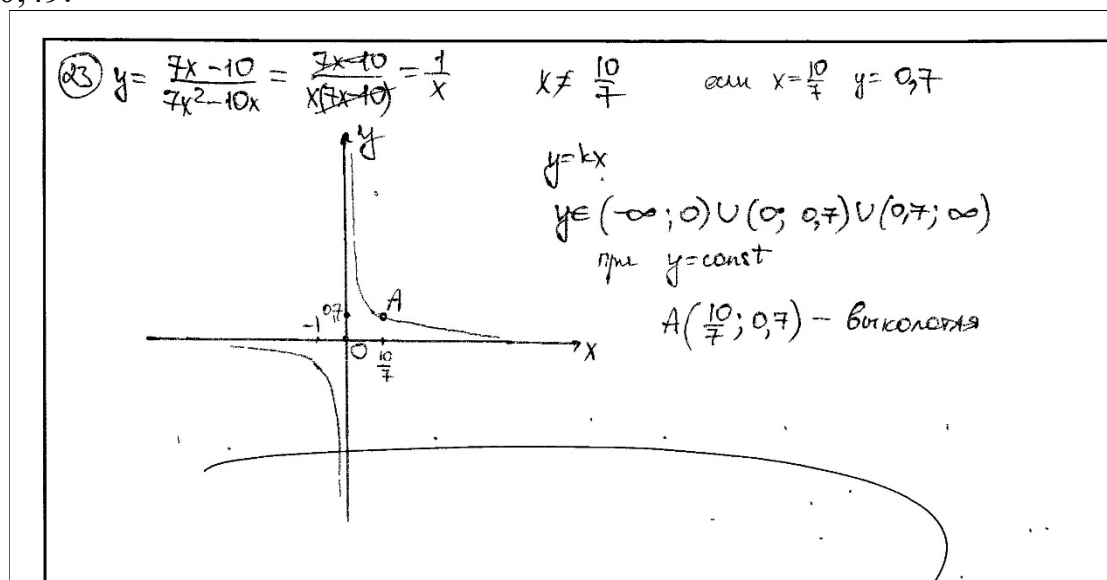 (23) y = (7x-10)/(7x²-10x) = (7x-10)/(x(7x-10)) = 1/x    x ≠ 10/7    если x = 10/7 y = 0,7
y
y=kx
y∈(-∞; 0)∪(0; 0,7)∪(0,7; ∞)
при y=const
A(10/7; 0,7) – выколотая
0,7 A
-1 0 10/7 x